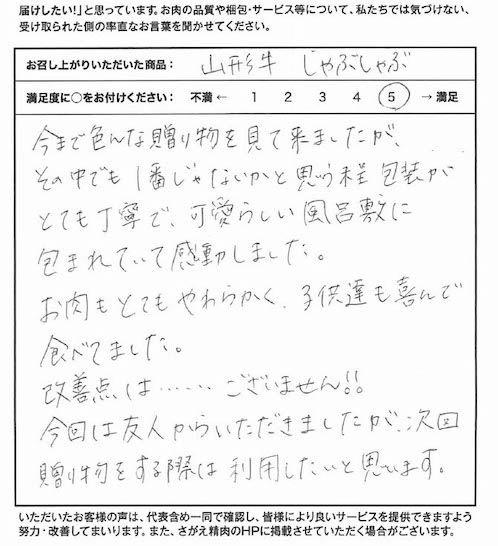 届けしたい！」と思っています。お肉の品質や梱包・サービス等について、私たちでは気づけない、
受け取られた側の率直なお言葉を聞かせてください。
お召し上がりいただいた商品： 山形牛 しゃぶしゃぶ
満足度に○をお付けください： 不満 ← 1 2 3 4 5 → 満足
今まで色んな贈り物を見て来ましたが、
その中でも1番じゃないかと思う程包装が
とても丁寧で、可愛らしい風呂敷に
包まれていて感動しました。
お肉もとてもやわらかく、子供達も喜んで
食べてました。
改善点は……ございません!!
今回は友人からいただきましたが、次回
贈り物をする際は利用したいと思います。
いただいたお客様の声は、代表含め一同で確認し、皆様により良いサービスを提供できますよう
努力・改善してまいります。また、さがえ精肉のHPに掲載させていただく場合がございます。